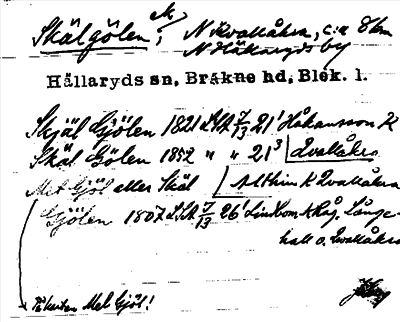 Skälgölen, N Kvallåkra, c:a 8 km
N Hällaryds by
Hällaryds sn, Bräkne hd, Blek. l.
Skjäl Gjölen 1821 LSA J/13 21¹ Håkansson K
Skäl Gölen 1852 " " 21³ Qvallåkra
Met Gjöl eller Skäl Althin K Qvallåkra
Gjölen 1807 LSA J/13 26¹ Lindbom Långe-
hall o. Qvallåkra
På kartan Met Gjöl!